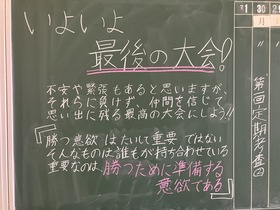 いよいよ
最後の大会!
不安や緊張もあると思いますが、
それらに負けず、仲間を信じて
思い出に残る最高の大会にしよう!!
『勝つ意欲はたいして重要ではない
そんなものは誰もが持ち合わせている
重要なのは勝つために準備する
意欲である』
1 30
月
第一回定期考査